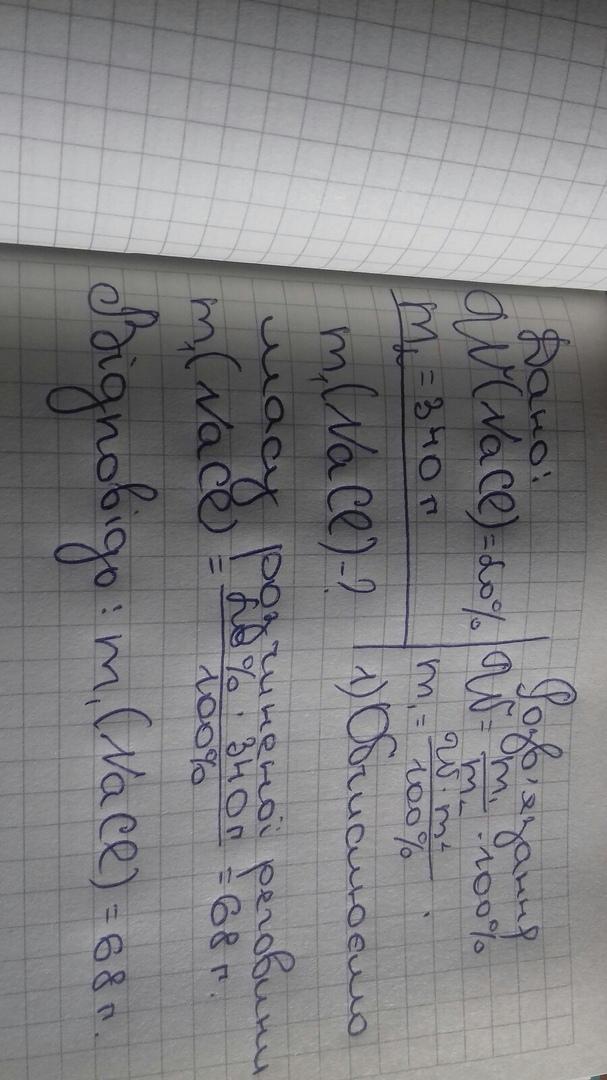 Дано:
W(NaCl)=20%
m₂=340 г
m₁(NaCl)-?
Розв'язання
W = m₁/m₂ · 100%
m₁ = W · m₂/100%
1) Обчислюємо
масу розчиненої речовини
m₁(NaCl) = 20% · 340 г/100% = 68 г.
Відповідь: m₁(NaCl) = 68 г.